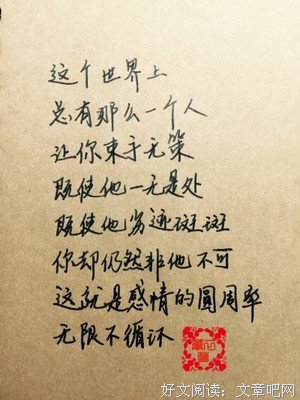 这个世界上
总有那么一个人
让你束手无策
既使他一无是处
既使他劣迹斑斑
你却仍然非他不可
这就是感情的圆周率
无限不循环
好文阅读：文章吧网